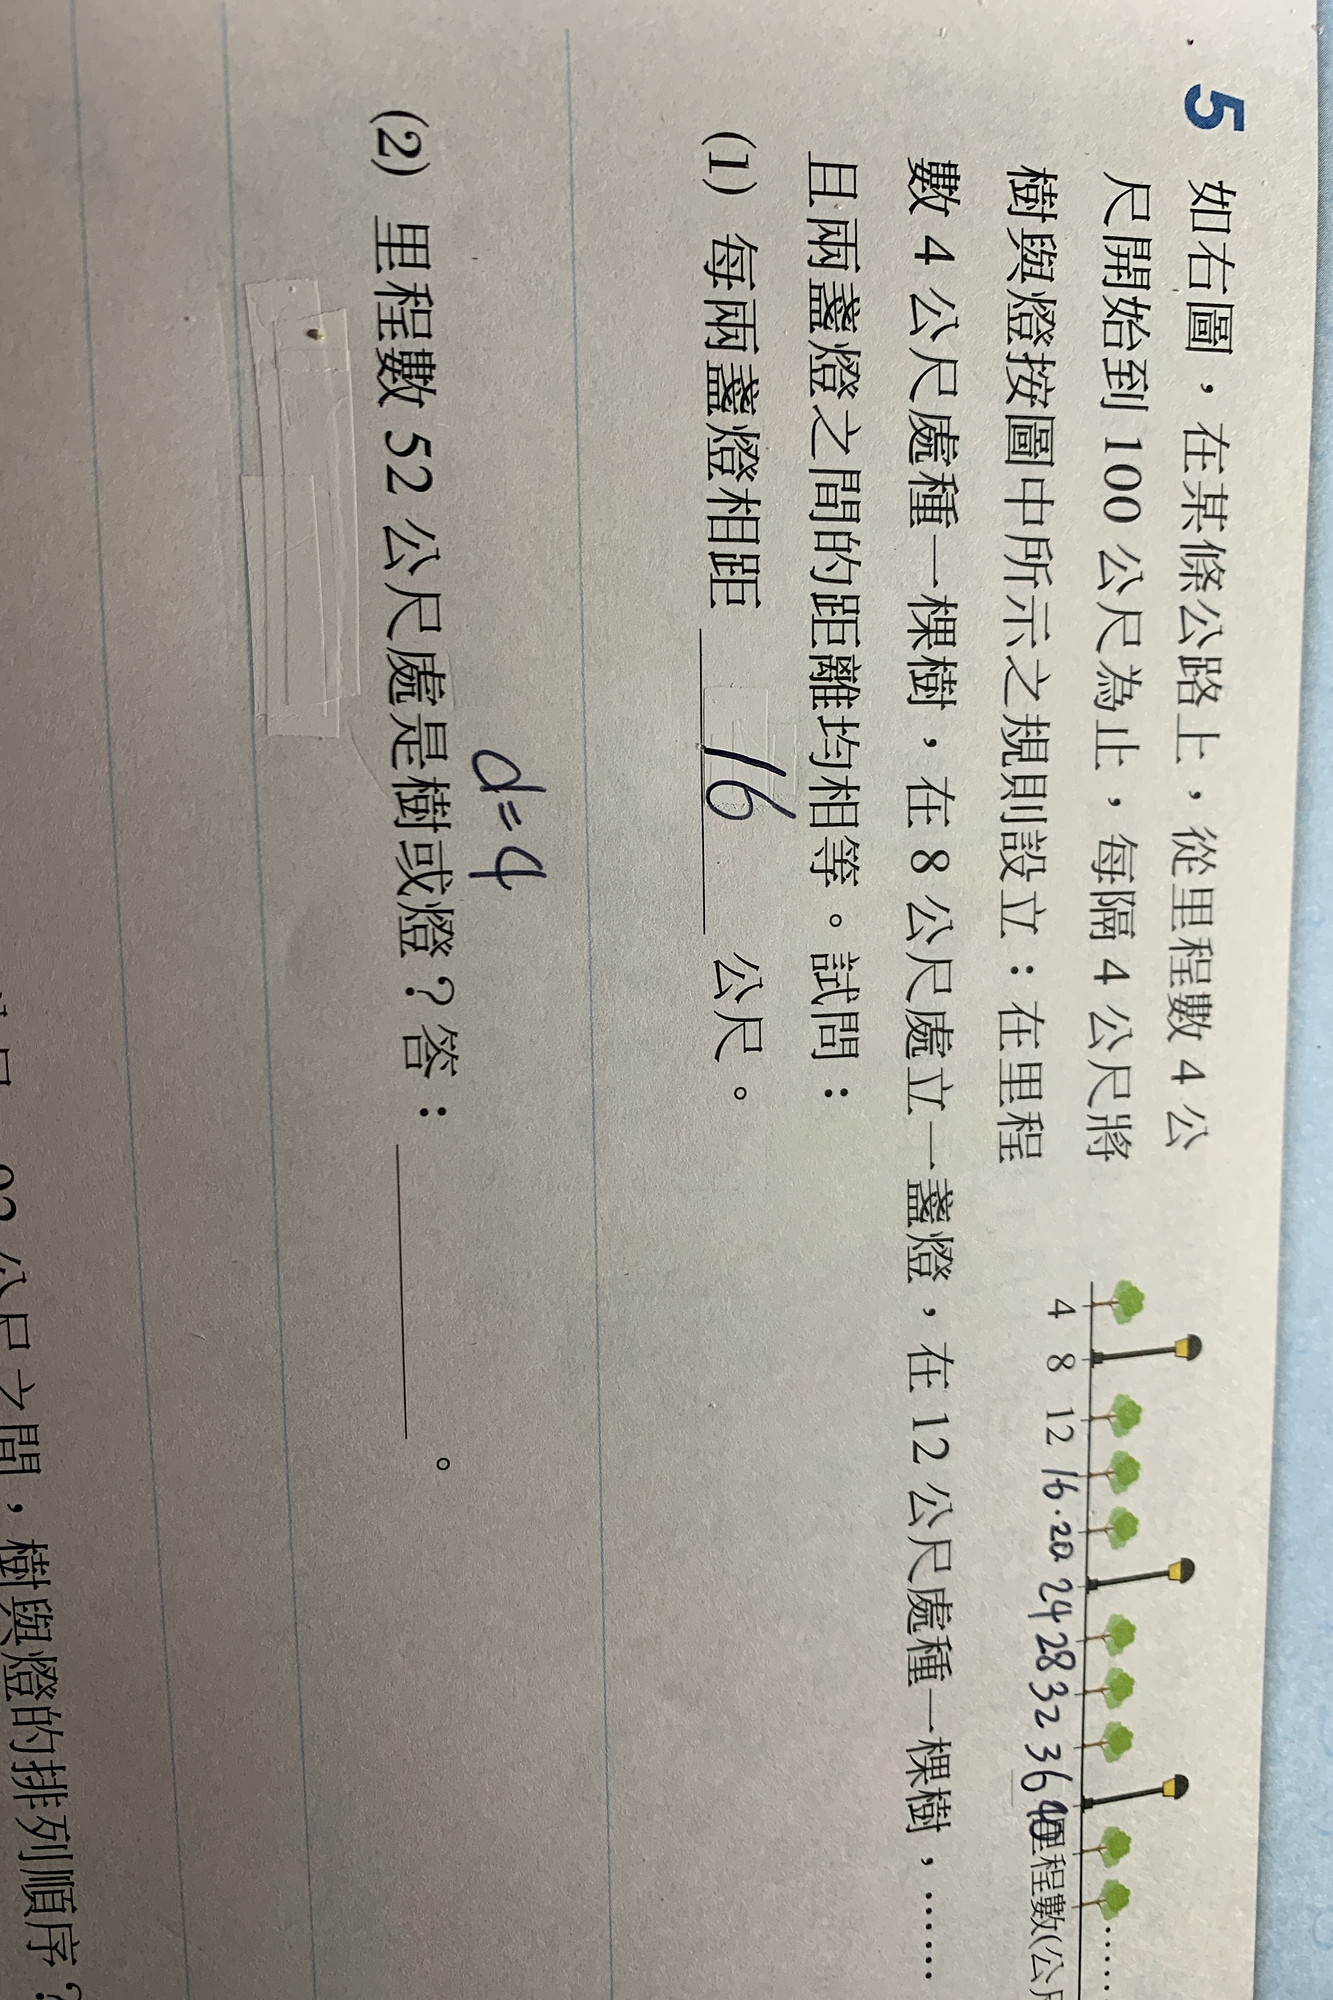 5 如右圖，在某條公路上，從里程數 4 公
尺開始到 100 公尺為止，每隔 4 公尺將
樹與燈按圖中所示之規則設立：在里程
數 4 公尺處種一棵樹，在 8 公尺處立一盞燈，在 12 公尺處種一棵樹，……
且兩盞燈之間的距離均相等。試問：
4 8 12 16 20 24 28 32 36 40 里程數(公尺
……
(1) 每兩盞燈相距 16 公尺。
d=4
(2) 里程數 52 公尺處是樹或燈？答：。
公尺之間，樹與燈的排列順序？